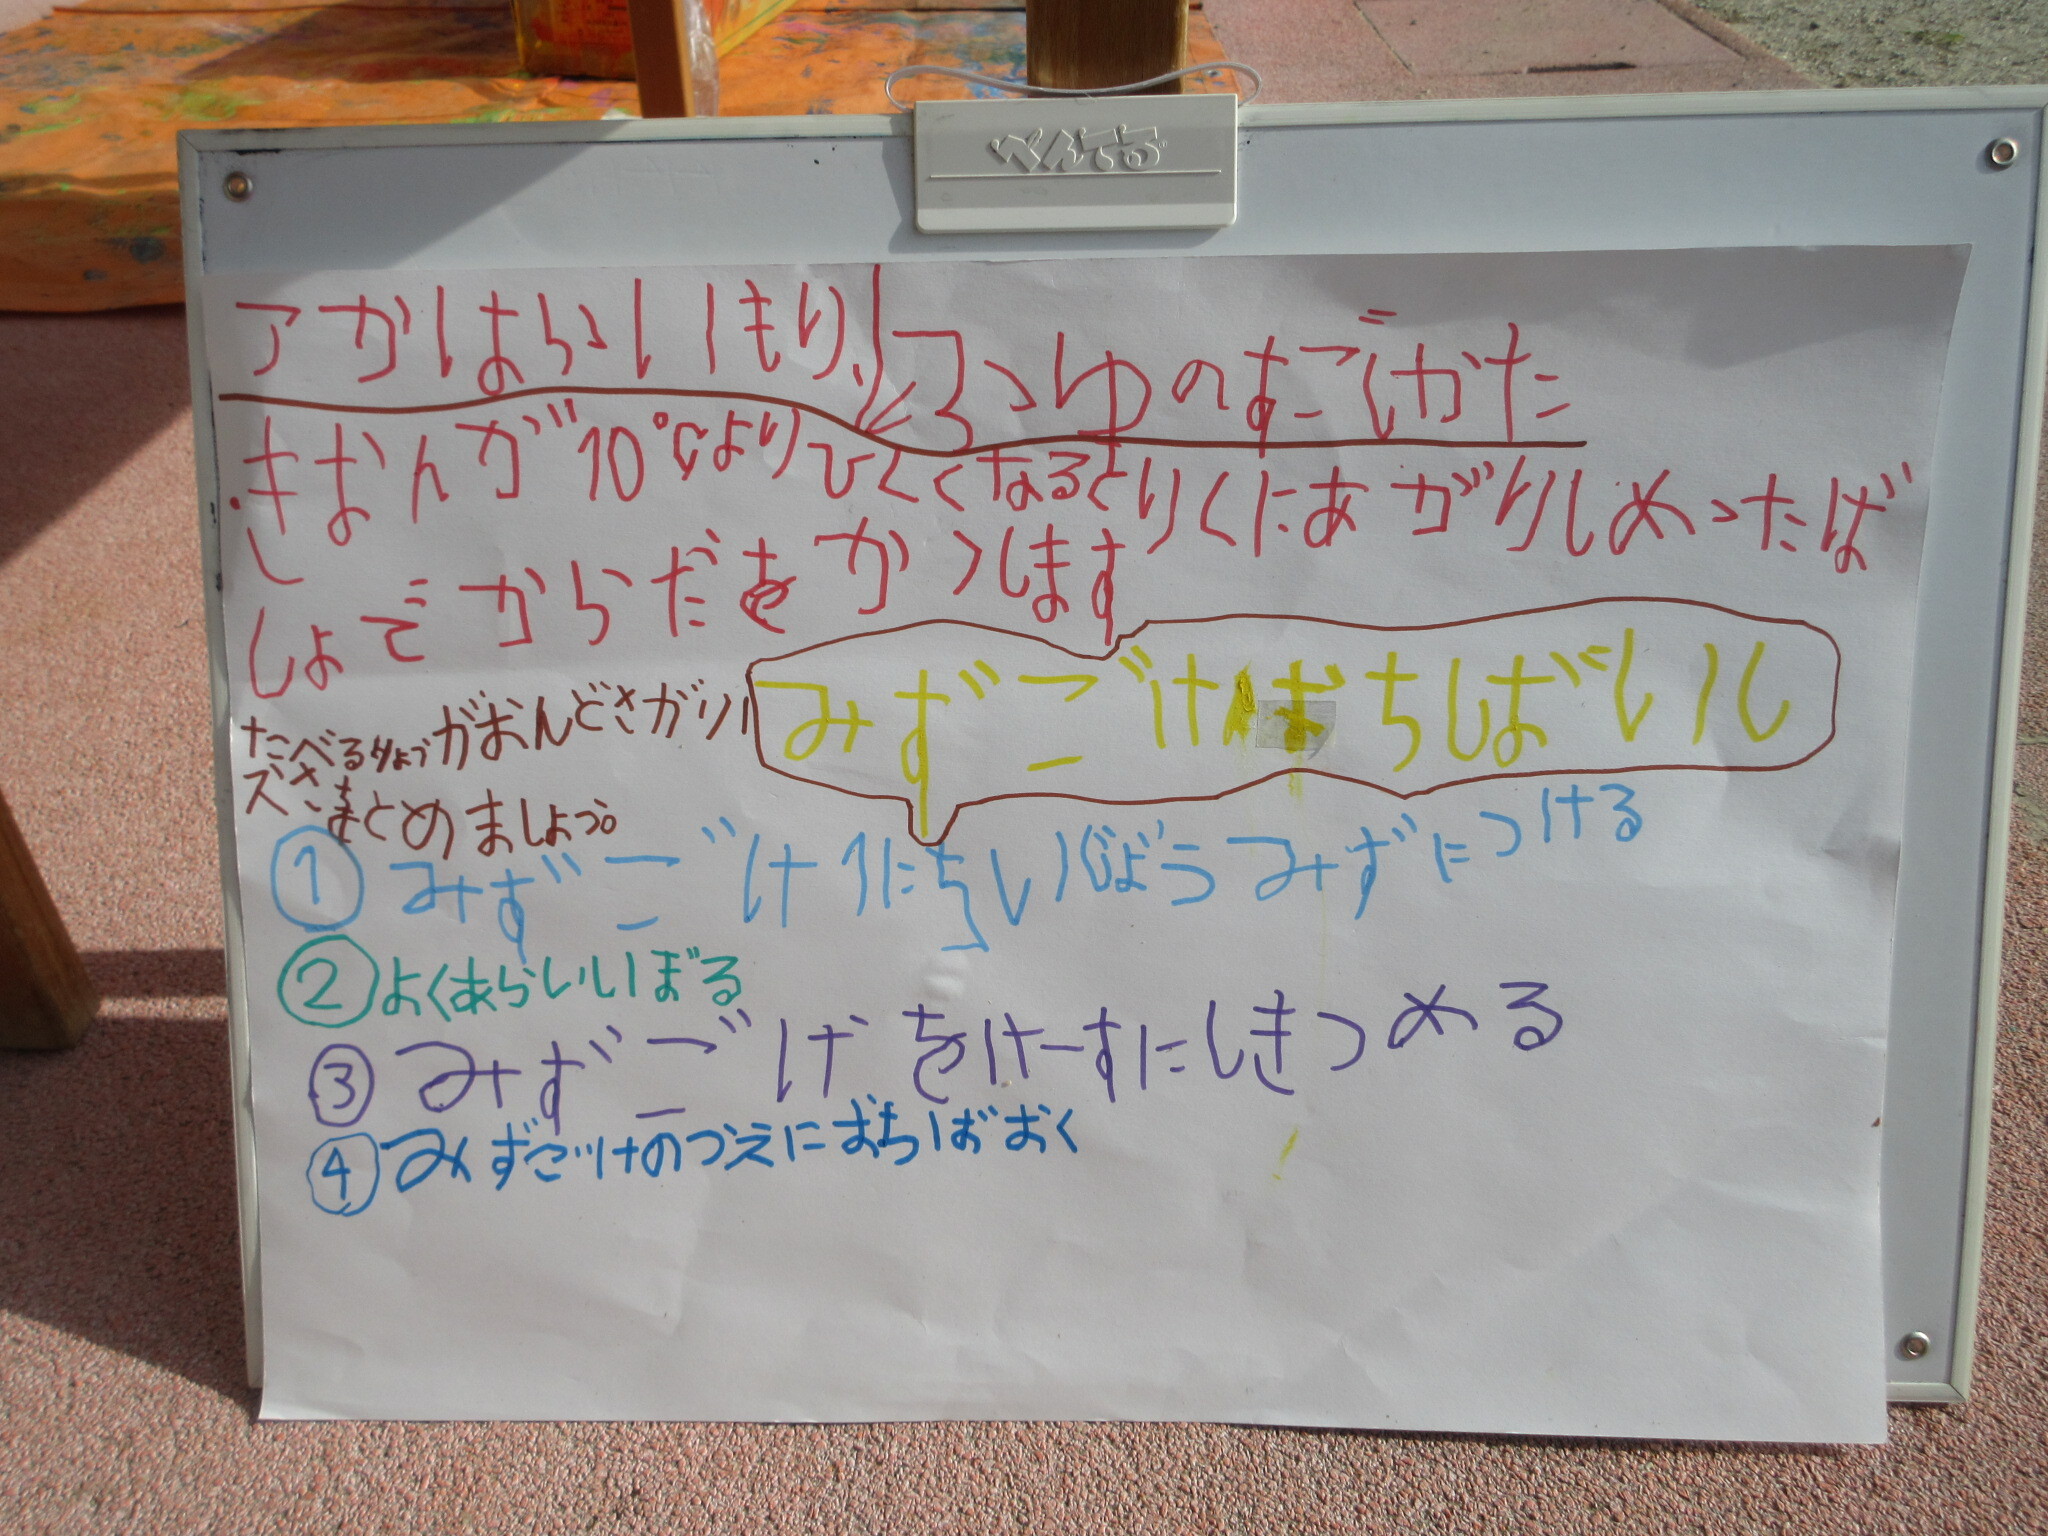 ぺんてる
アかはらいもり ふゆのすごしかた
きおんが10℃よりひくくなるとりくにあがりしめったば
しょでからだをかつします
みずごけ おちば
たべるりょうがおんどさがり
まとめましょう。
① みずごけ いちにちいじょうみずにつける
② よくあらいしぼる
③ みずごけをけーすにしきつめる
④ みずごけのうえにおちばおく